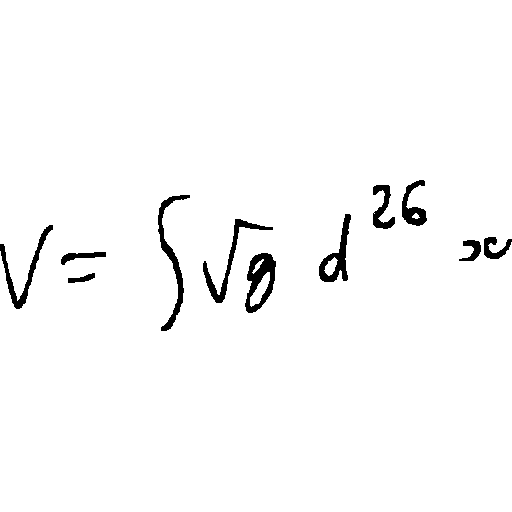 V = ∫ √g d²⁶ x